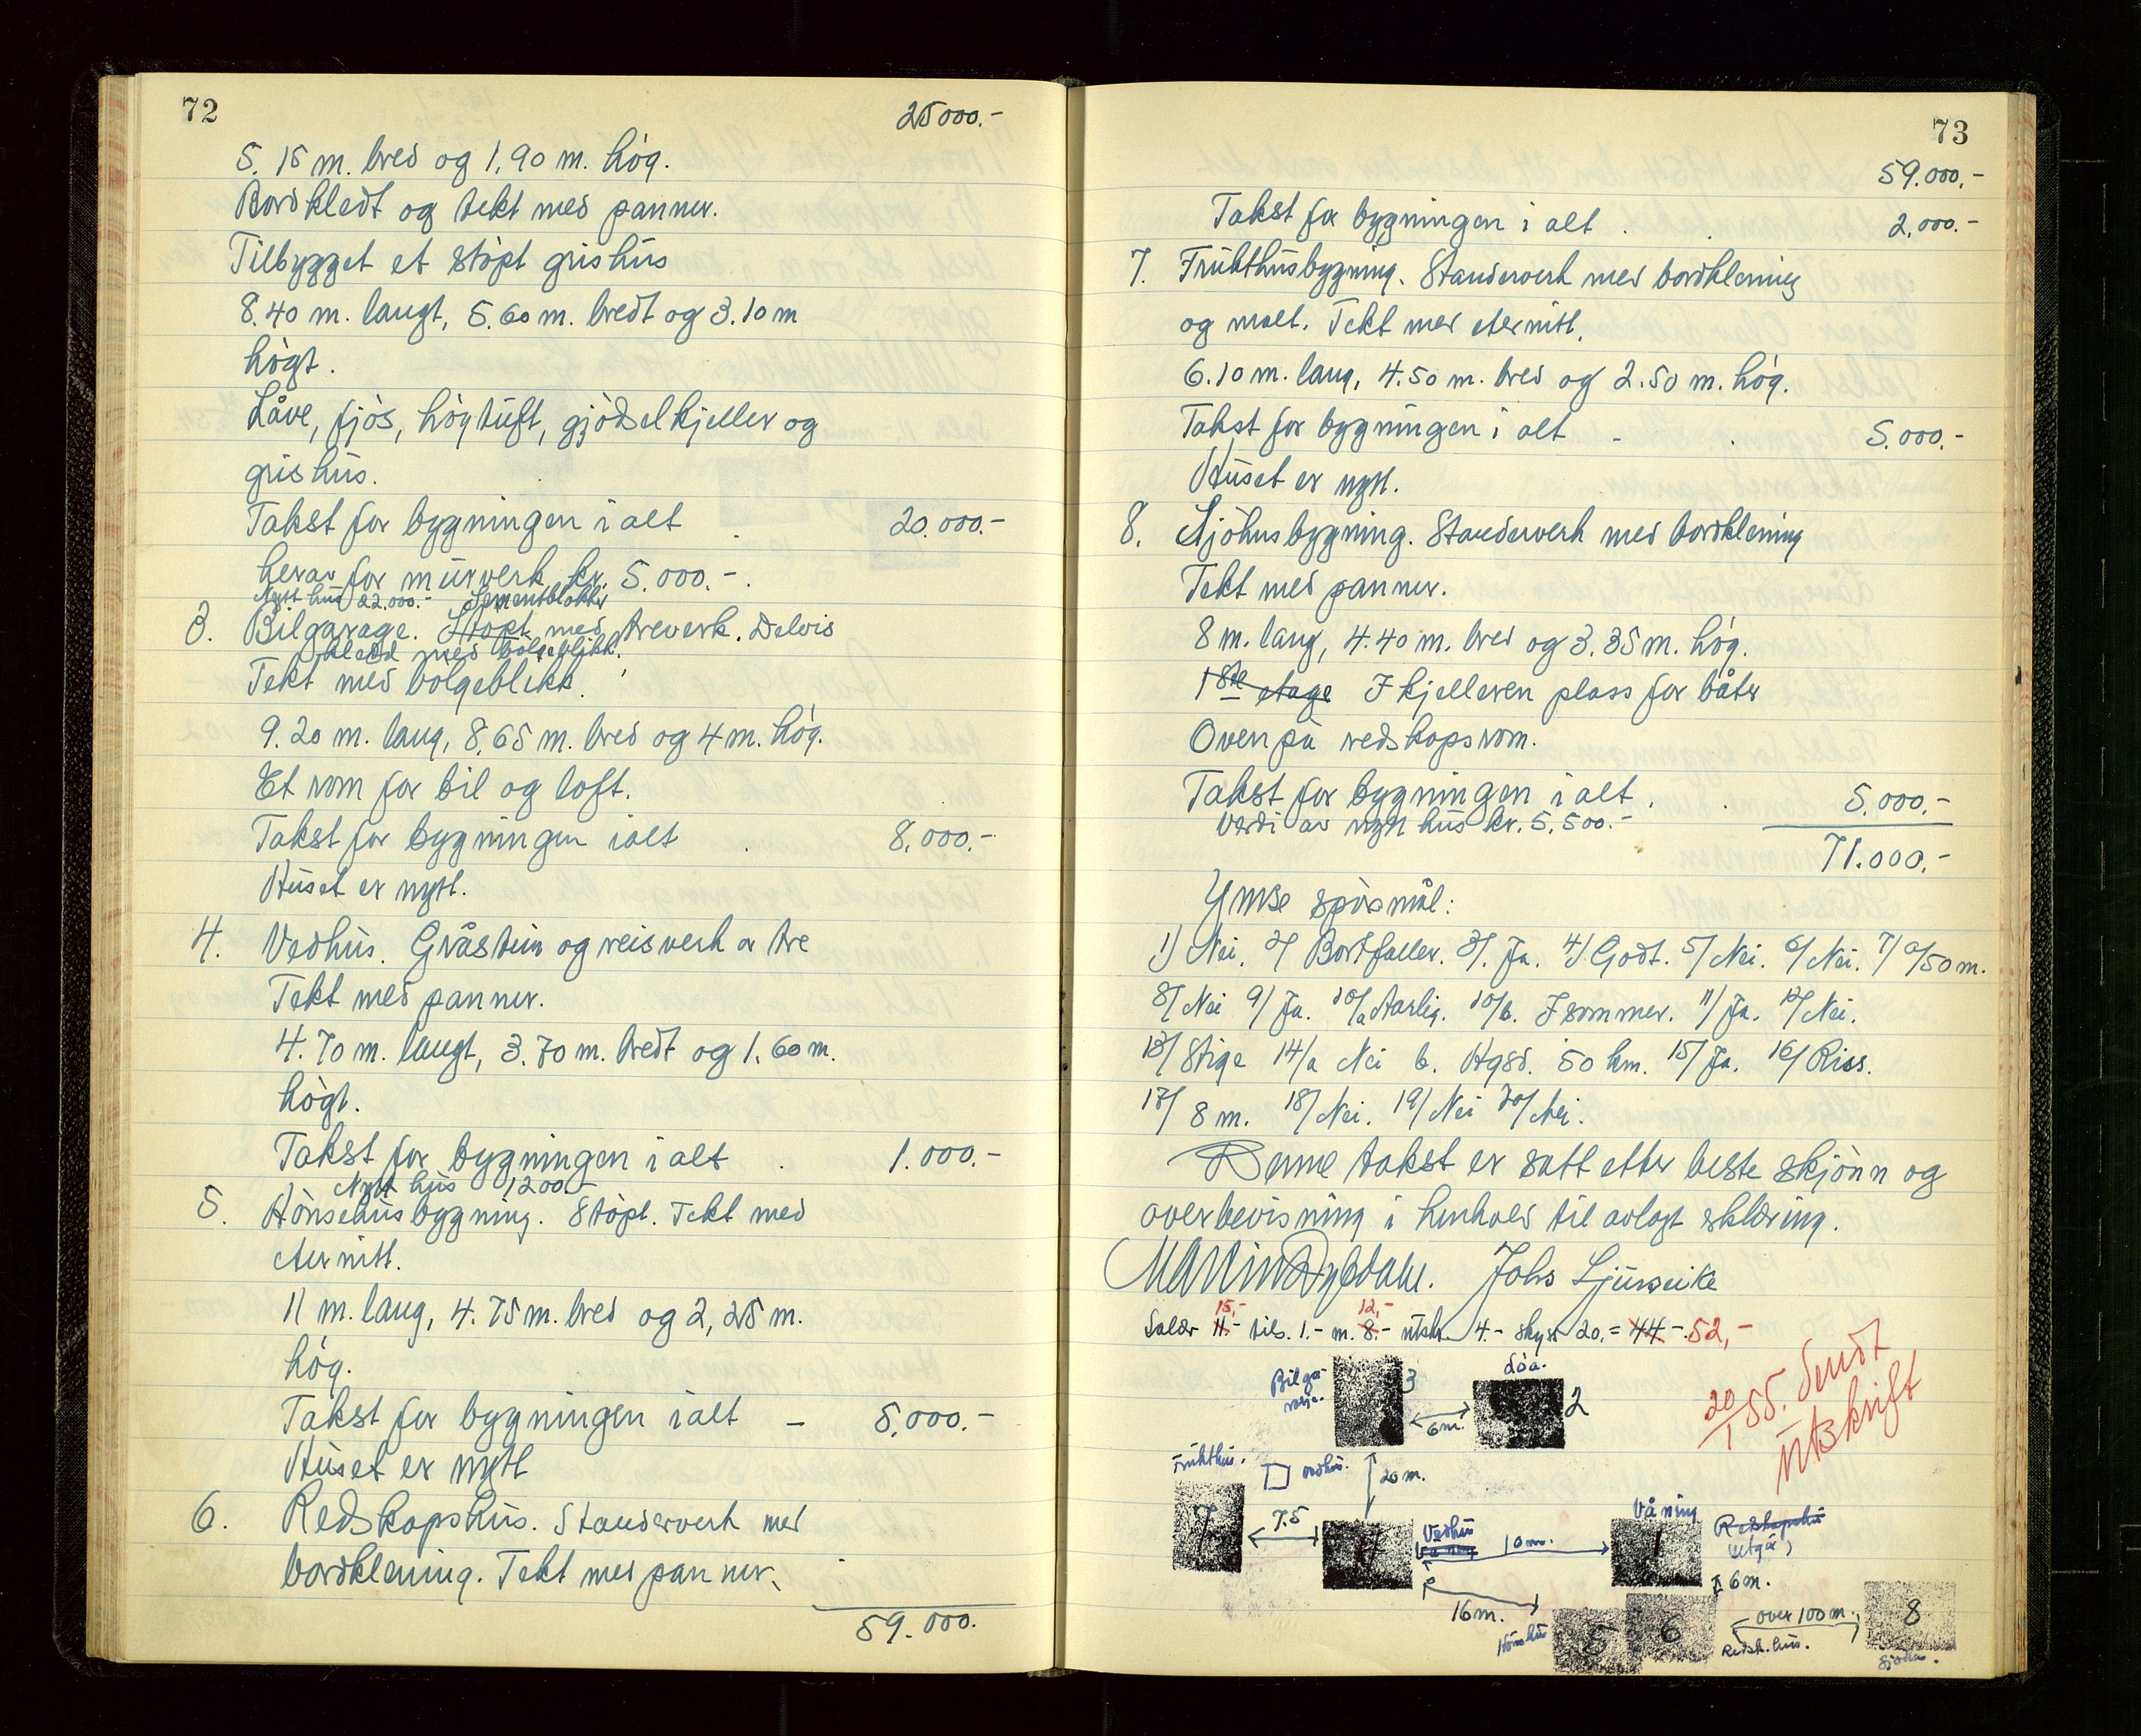 72
25000.-
5.15 m. bred og 1,90 m. høg.
Bordkledt og tekt med panner.
Tilbygget et støpt grishus
8.40 m. langt, 5.60 m. bredt og 3.10 m
høgt.
Låve, fjøs, høytuft, gjødselkjeller og
grishus.
Takst for bygningen i alt . 20.000.-
herav for murverk kr. 5.000.-.
Nytt hus 22.000.- Sementblokker
3. Bilgarage. Støpt med treverk. Delvis
kledd med bølgeblikk.
Tekt med bølgeblikk.
9.20 m. lang, 8.65 m. bred og 4 m. høg.
Et rom for bil og loft.
Takst for bygningen ialt . 8.000.-
Huset er nytt.
4. Vedhus. Gråstein og reisverk av tre
Tekt med panner.
4.70 m. langt, 3.70 m. bredt og 1.60 m.
høgt.
Takst for bygningen i alt . 1.000.-
Nytt hus 1200.-
5. Hønsehusbygning. Støpt. Tekt med
eternitt.
11 m. lang, 4.75 m. bred og 2,25 m.
høg.
Takst for bygningen ialt - 5.000.-
Huset er nytt
6. Redskapshus. Standerverk med
bordklening. Tekt med panner.
59.000.
73
59.000.-
Takst for bygningen i alt . . 2.000.-
7. Frukthusbygning. Standerverk med bordklening
og malt. Tekt med eternitt.
6.10 m. lang, 4.50 m. bred og 2.50 m. høg.
Takst for bygningen i alt - . 5.000.-
Huset er nytt.
8. Sjøhusbygning. Standerverk med bordklening
Tekt med panner.
8 m. lang, 4.40 m. bred og 3.35 m. høg.
1ste etage I kjelleren plass for båter
Oven på redskapsrom.
Takst for bygningen i alt . . 5.000.-
Verdi av nytt hus kr. 5.500.-
71.000.-
Ymse spørsmål:
1/ Nei. 2/ Bortfaller. 3/. Ja. 4/ Godt. 5/ Nei. 6/ Nei. 7/ a/50 m.
8/ Nei 9/ Ja. 10/a Aarlig. 10/b. I sommer. 11/ Ja. 12/ Nei.
13/ Stige 14/a Nei b. Hgsd. 50 km. 15/ Ja. 16/ Riss.
17/ 8 m. 18/ Nei. 19/ Nei 20/ Nei.
Denne takst er satt etter beste skjønn og
overbevisning i henhold til avlagt erklæring.
Johs
15,- 12,-
Salær 11.- tils. 1.- m. 8.- utskr. 4.- skyss 20.= 44-. 52,-
20/1 55. Sendt
Utskrift
Bilga-
rasje.
3
Løa.
2
6m.
Frukthus.
vedhus.
20 m.
7
7.5
4
Vedhus
Våning
10 m.
Våning
1
Redskapshus
utgår
6 m.
16 m.
Hønsehus
5
6
over 100 m.
Redsk.hus.
8
Sjøhus.